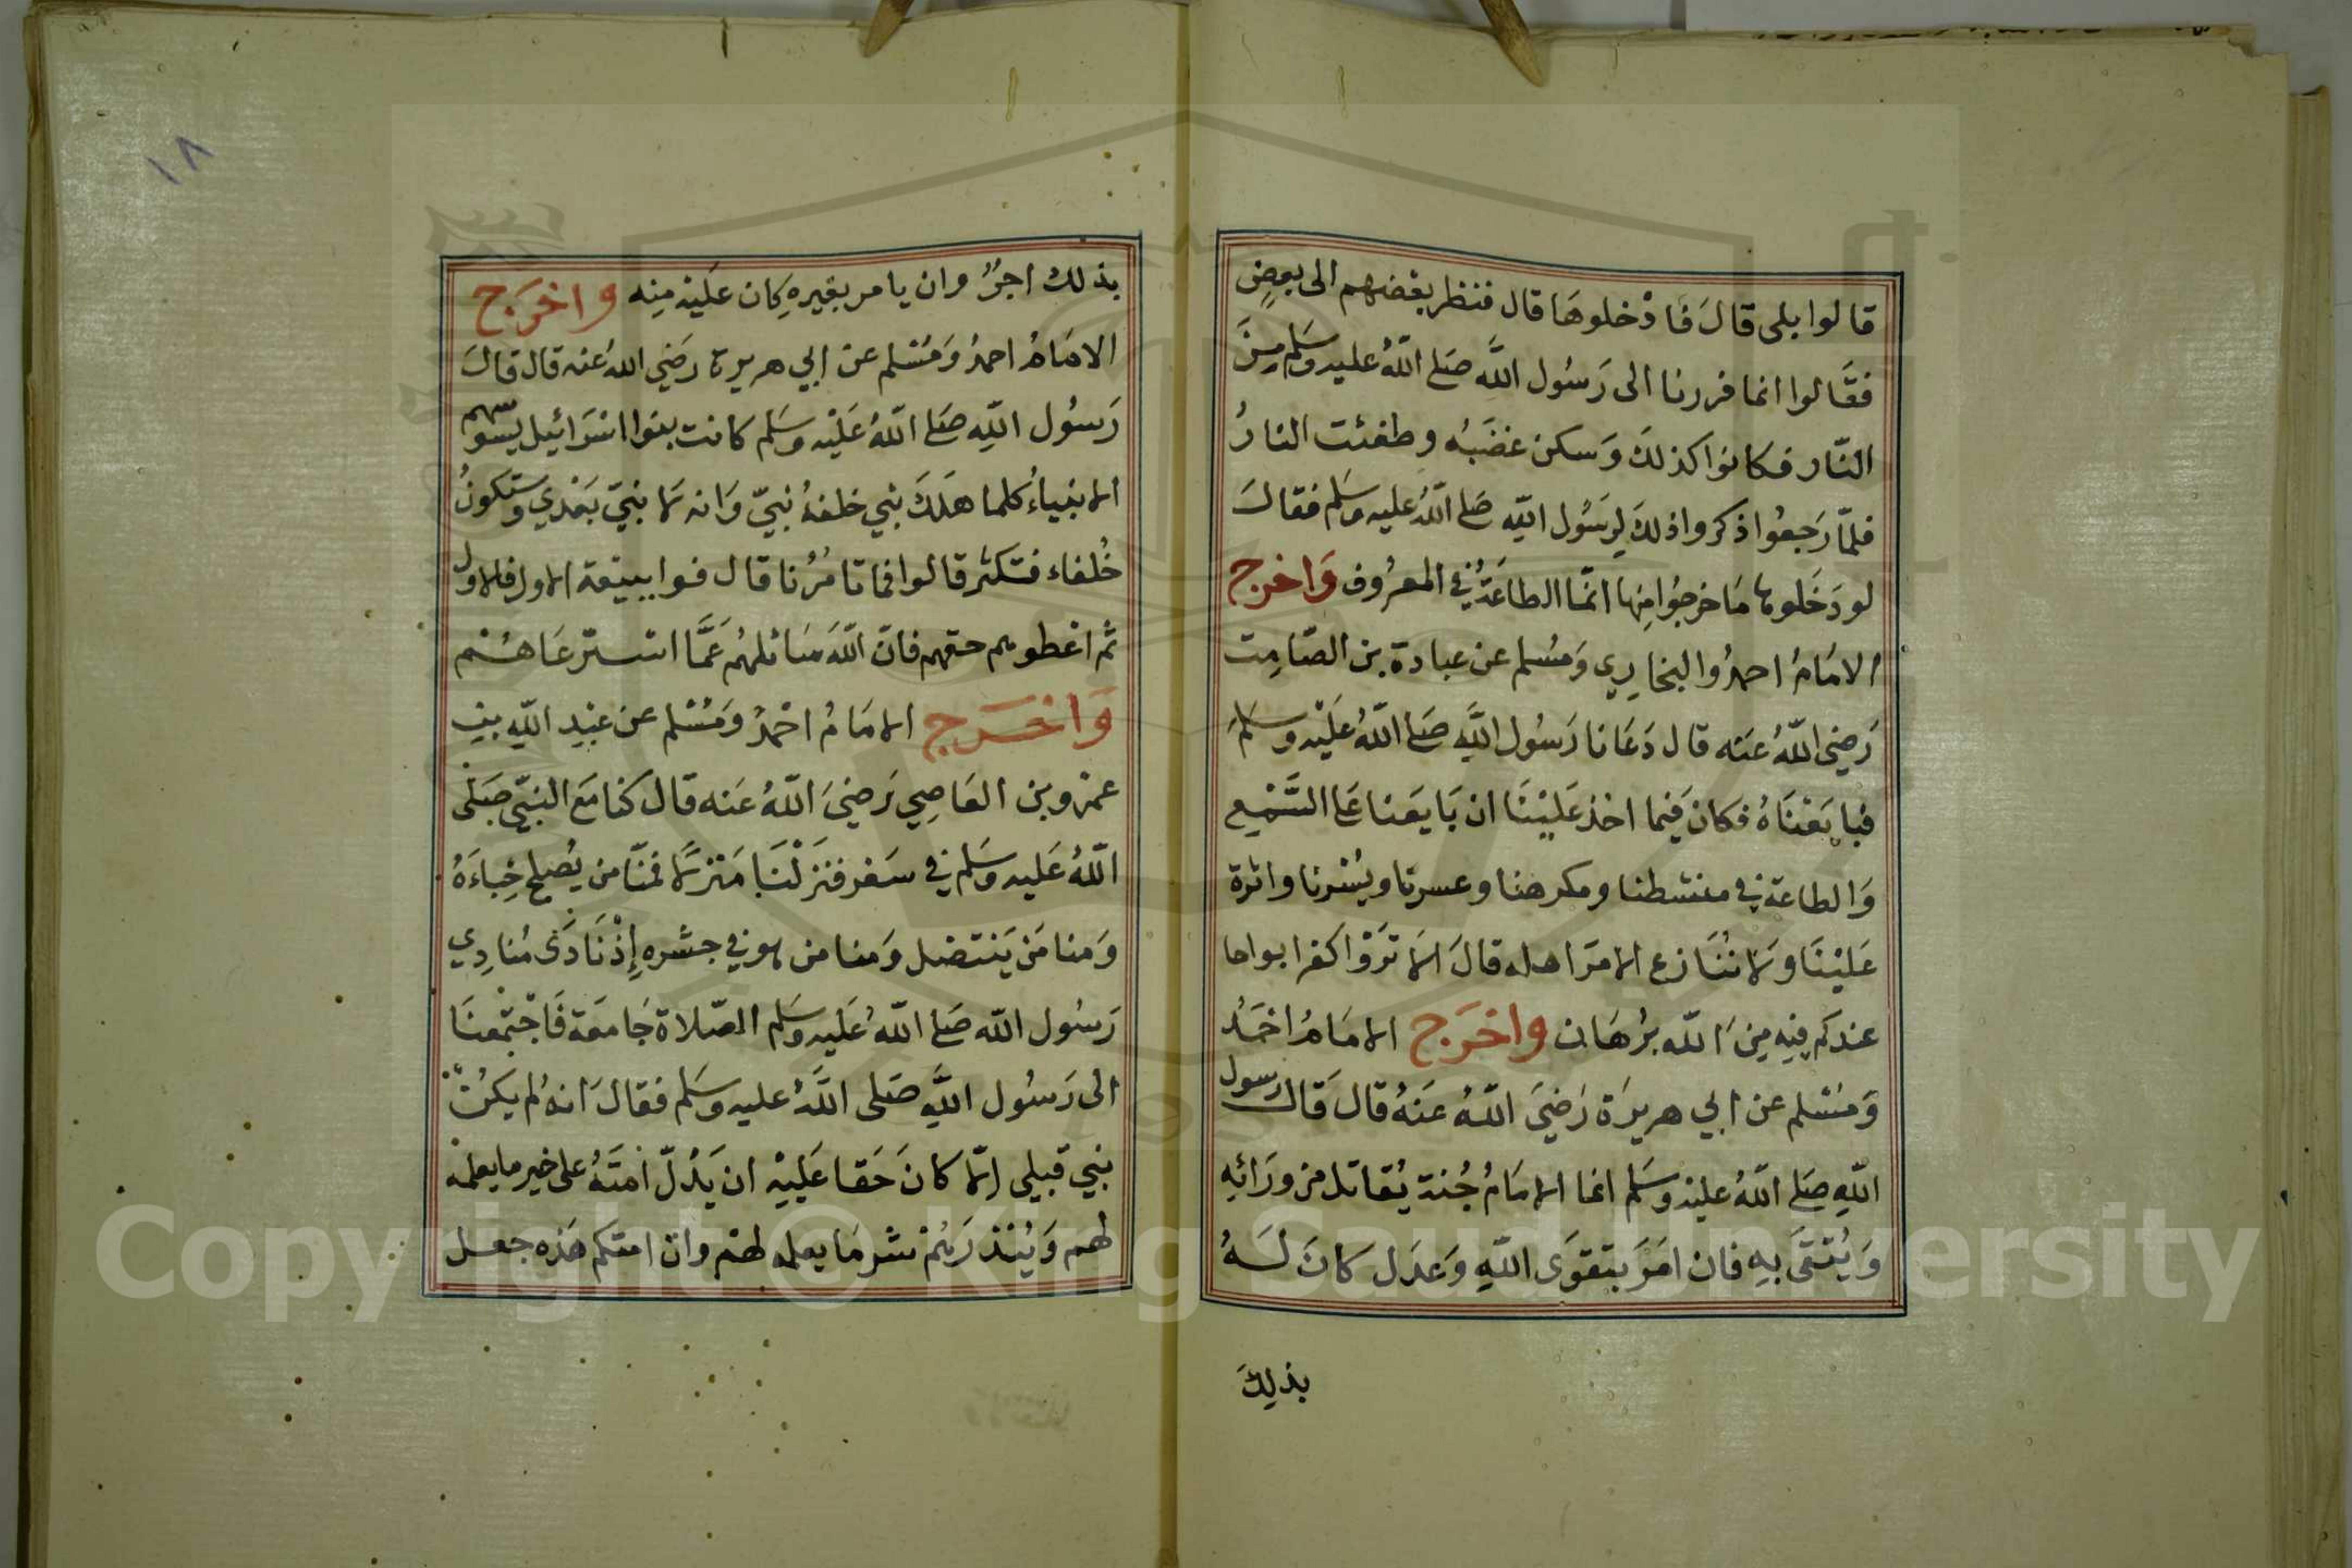 قالوا بلى قالَ فَادْخلوهَا قال فنظر بعْضهم الى بعضٍ
فقَالوا انما فررنا الى رَسُول اللَّه صَلى اللّٰهُ عليه وسَلم مِنَ
النّار فكانوا كذلكَ وَسكن غضَبُه وطفئت النارُ
فلمّا رَجعُوا ذكروا ذلكَ لِرَسُول اللّه صَلى اللّٰهُ عليه وسَلم فقالَ
لو دَخَلوها مَا خرجُوا مِنها انّما الطاعَةُ في المعرُوف وَاخرج
الامَامُ احمدُ والبخارِي وَمسُلم عن عبادة بن الصّامِت
رَضِي اللّٰهُ عَنه قال دَعَانا رَسُول اللَّهِ صَلى اللّٰهُ عَلَيْه وسَلمَ
فبايَعْنَاهُ فكانَ فيما اخذ عَليْنَا ان بَايَعنا عَلى السَّمْع
وَالطاعة في منشطنا ومكرهنا وعسرنا ويُسْرنا واثرة
عَليْنَا ولا نُنَازع الامرَ اهله قالَ الا تَرَوْا كفرا بواحا
عندكم فيِه مِنَ اللّٰه برُهَان واخرَج الامَامُ احْمَدُ
وَمسُلم عن ابي هريرَة رَضِيَ اللّٰهُ عَنهُ قالَ قَالَ رسول
اللّهِ صَلى اللّٰهُ عليْه وسَلم انما الامَامُ جُنة يُقاتل من ورَائِه
وَيُتقَى بهِ فان امَرَ بتقوَى اللّهِ وَعدَل كانَ لَهُ
بذلِكَ
١٨
بذلك اجرٌ وان يامر بغيرهِ كان عليْه مِنه واخرَج
الامَامُ احمدُ وَمُسْلم عن ابي هريرة رَضِي اللّٰهُ عنه قال قالَ
رَسُول اللّهِ صَلى اللّٰهُ عَلَيْه وسَلم كانت بنوا اسْرَائيل تسوسهم
الانبياءُ كلما هَلكَ نبي خلفهُ نبيّ وَانه لا نبيّ بَعْدي وستكونُ
خُلفاء فتكثر قالوا فما تامُرُنا قال فوا ببيْعة الاول فالاول
ثم اعْطوهم حقهم فانّ اللّٰهَ سَائلهُم عَمَّا استرعَاهُم
وَاخرَج الامَامُ احْمدُ وَمُسْلم عن عبْدِ اللّهِ بن
عمْرو بن العَاصِي رَضيَ اللّٰهُ عَنه قال كنا مَعَ النبيّ صَلى
اللّٰهُ عَليه وسَلم في سَفر فنَزلْنَا مَنزلًا فمنّا من يُصلح خِباءَهُ
وَمنا مَن يَنتضل وَمنا من هو في جشره إِذْ نَادَى مُنادِي
رَسُول اللّٰه صَلى اللّٰهُ عَليه وسَلم الصّلاة جَامعَة فَاجْتمعْنَا
الى رَسُول اللَّهِ صَلى اللَّهُ عليه وسَلم فقالَ انهُ لم يكن
نبي قبلي الّا كانَ حَقا عَليْه ان يَدُلّ امتَهُ على خير ما يعلمهُ
لهم وَيُنذرَهُمْ شر مَا يعلمه لهُم وان امتكم هَذه جعل
Copyright © King Saud University